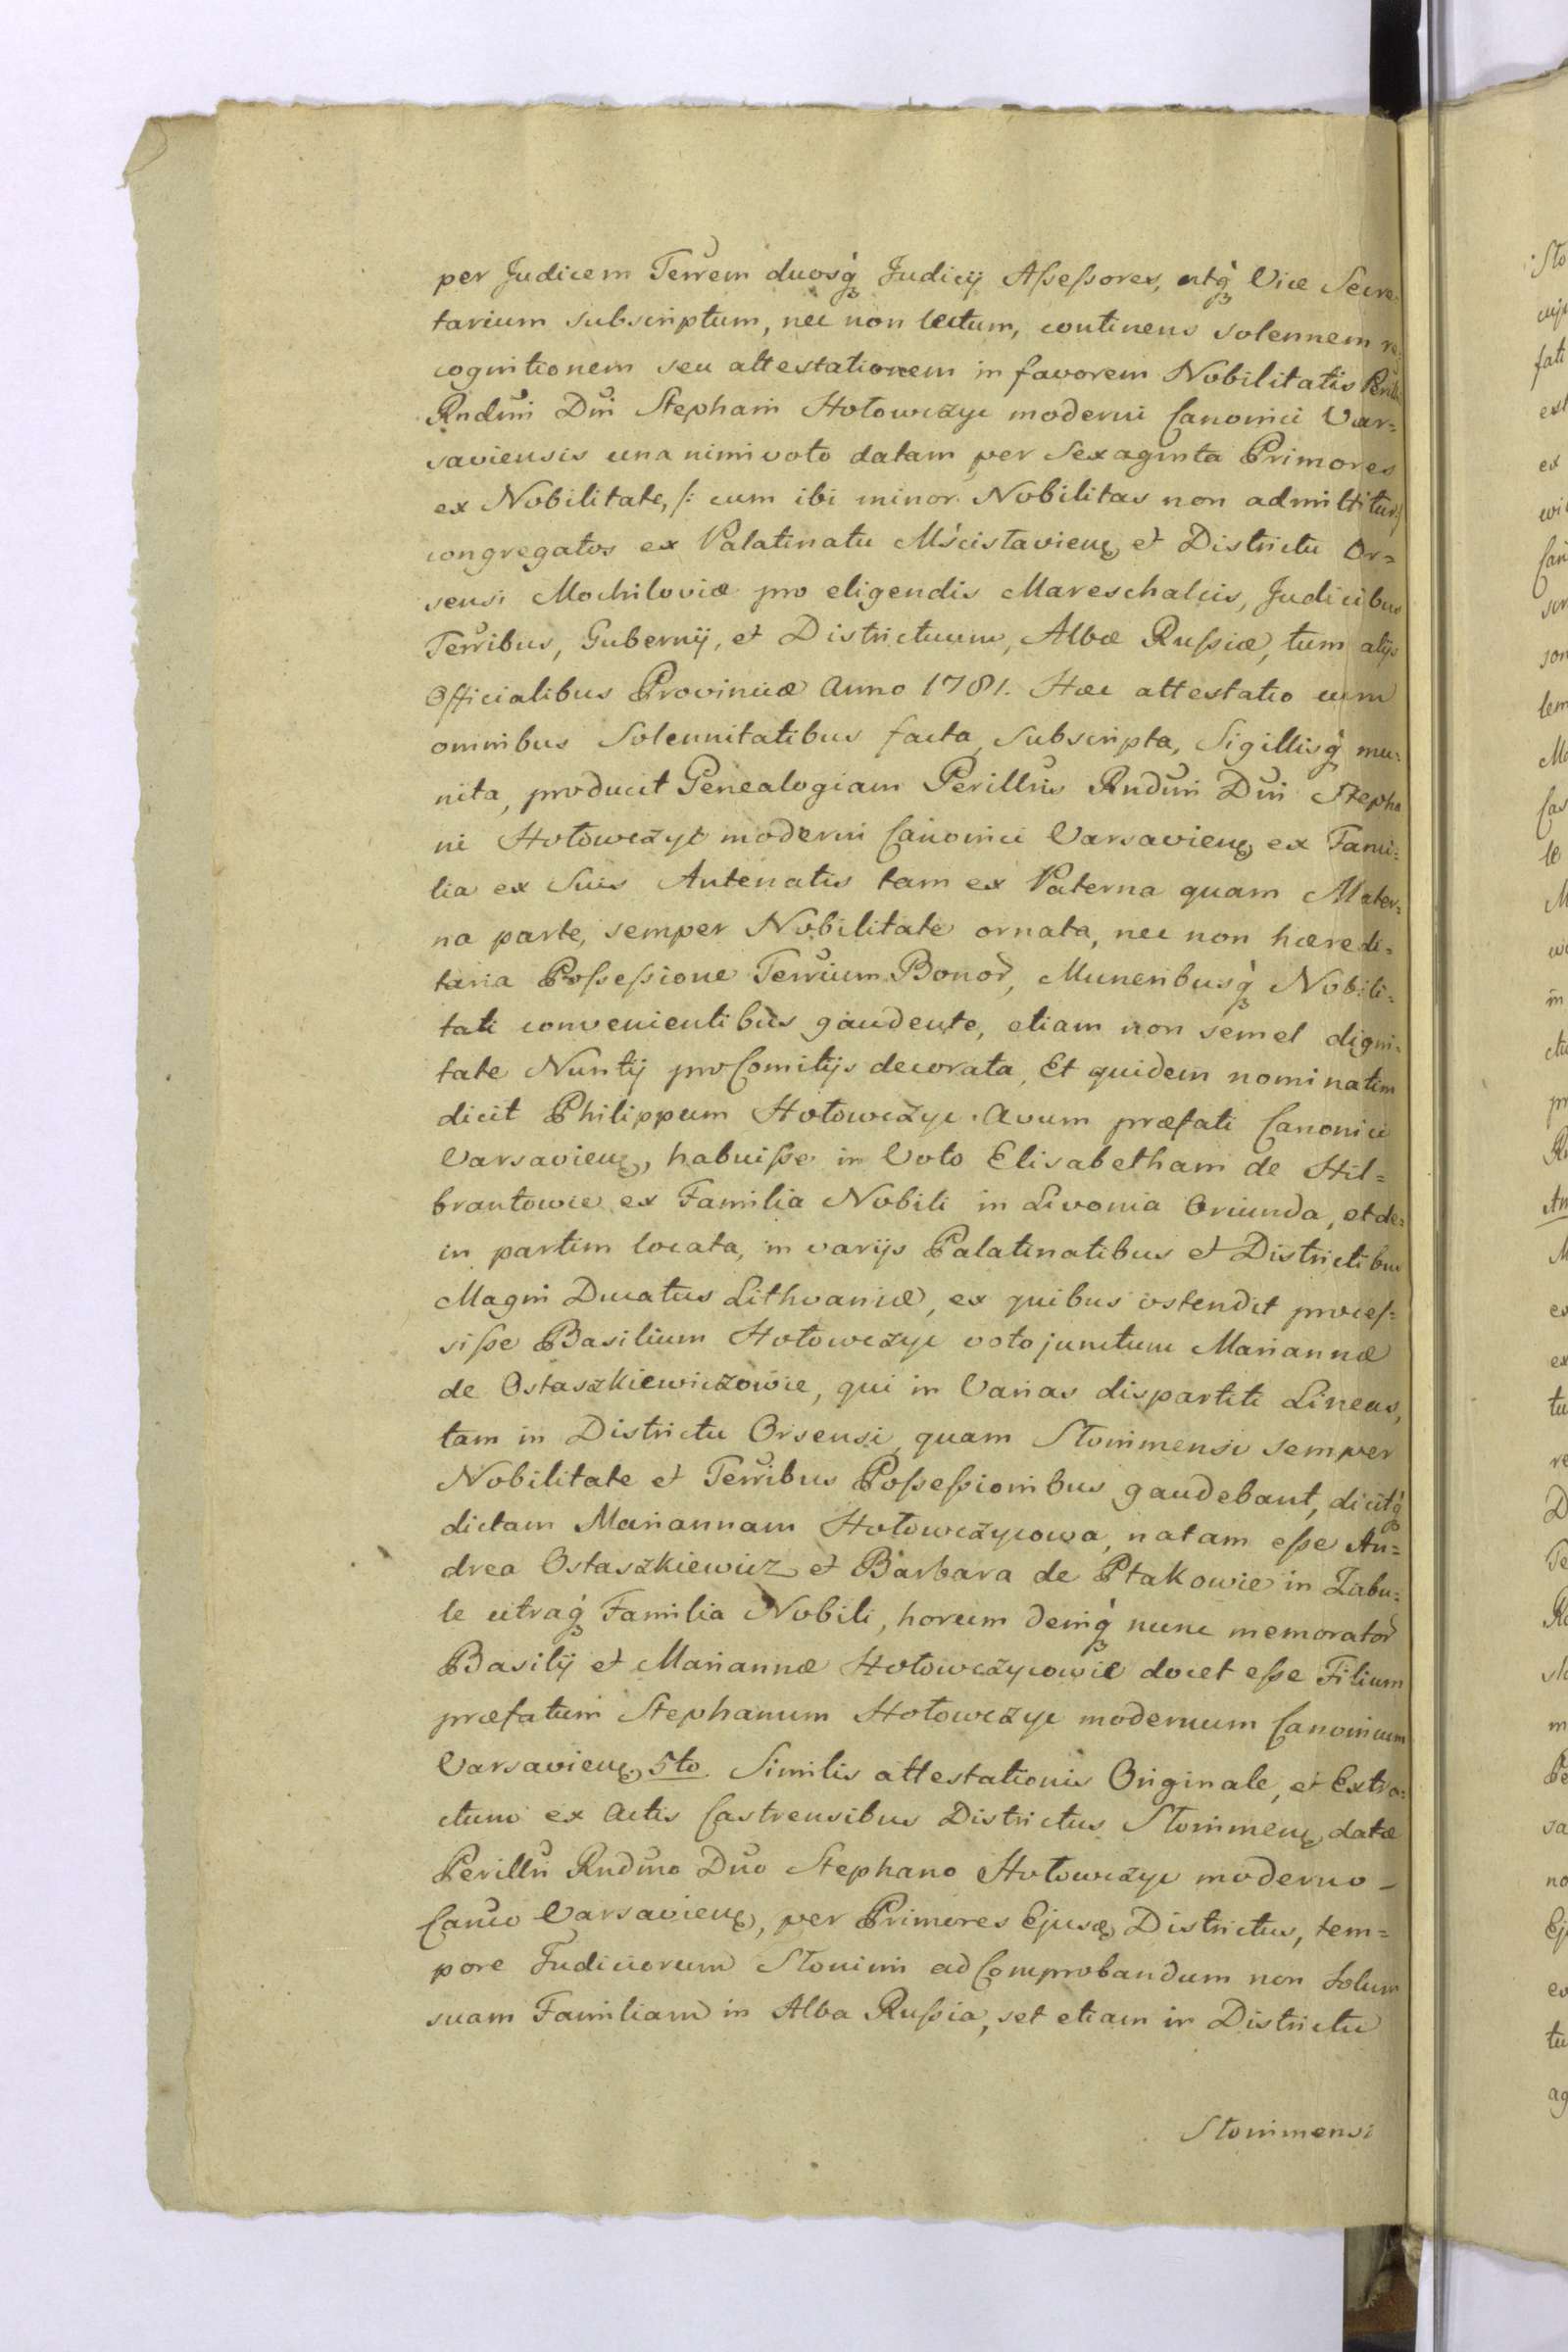 per Judicem Terrem duosq̀ Judicij Aſseſsores, utq̀ Vice Secre=
tarium subscriptum, nec non lectum, continens solennem re=
cognitionem seu attestationem in favorem Nobilitatis Perill
Rndmi Dni Stephani Hołowczyc moderni Canonici Var=
saviensis unanimi voto datam, per Sexaginta Primores
ex Nobilitate, /: cum ibi minor Nobilitas non admittitur:/
congregatos ex Palatinatu Mścisłavien, et Districtu Or=
sensi Mochiloviæ pro eligendis Mareschalcis, Judicibus
Terribus, Gubernij, et Districtuum, Albæ Ruſsiæ, tum alijs
Officialibus Provinciæ Anno 1781. Hæc attestatio cum
omnibus Solennitatibus facta, Subscripta, Sigillisq̀ mu=
nita, producit Genealogiam Perillris Rndmi Dni Stepha
ni Hołowczyc moderni Canonici Varsavien, ex Fami=
lia ex Suis Antenatis tam ex Paterna quam Mater=
na parte, semper Nobilitate ornata, nec non hæredi=
taria Poſseſsione Terrium Bonor, Muneribusq̀ Nobili=
tati convenientibus gaudente, etiam non semel digni=
tate Nuntij pro Comitijs decorata, Et quidem nominatim
dicit Philippum Hołowczyc Avum præfati Canonici
Varsavien, habuiſse in Voto Elisabetham de Hil=
brantowie ex Familia Nobili in Livonia Oriunda, et de=
in partim locata, in varijs Palatinatibus et Districtibus
Magni Ducatus Lithvaniæ, ex quibus ostendit proceſ=
siſse Basilium Hołowczyc voto junctum Mariannæ
de Ostaszkiewiczowie, qui in Varias dispartiti Lineas,
tam in Districtu Orsensi, quam Słonimensi semper
Nobilitate et Terribus Poſseſsionibus gaudebant, dicitq̀
dictam Mariannam Hołowczycowa, natam eſse An=
drea Ostaszkiewicz et Barbara de Ptakowie in Zabu=
le utraq̀ Familia Nobili, horum deniq̀ nunc memorator
Basilij et Mariannæ Hołowczycowie docet eſse Filium
præfatum Stephanum Hołowczyc modernum Canonicum
Varsavien, 5to Similis attestationis Originale, et Extra=
ctum ex Actis Castrensibus Districtus Słonimen, datæ
Perillri Rndmo Dno Stephano Hołowczyc moderno =
Canco Varsavien, per Primores Ejusd, Districtus, tem=
pore Judiciorum Słonimi ad Comprobandum non Solum
suam Familiam in Alba Ruſsia, set etiam in Districtu
Słonimensi